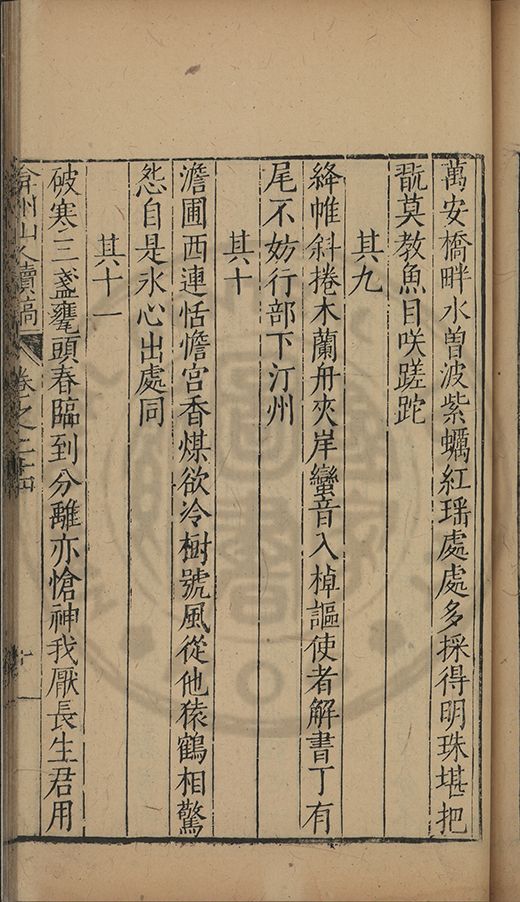 萬安橋畔水曽波紫蠣紅瑶處處多採得明珠堪把
翫莫教魚目咲蹉跎
其九
絳帷斜捲木蘭舟夾岸蠻音入棹謳使者解書丁有
尾不妨行部下汀州
其十
澹圃西連恬憺宫香煤欲冷樹號風從他猿鶴相驚
怨自是氷心出處同
其十一
破寒三盞甕頭春臨到分離亦愴神我厭長生君用
弇州山人續稿 卷之二十四 十一